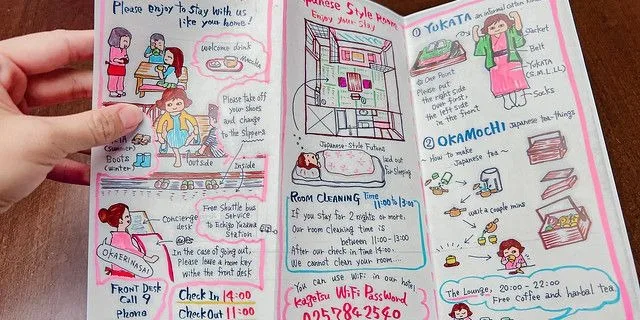 Please enjoy to Stay with us
like your home!
welcome drink
Matcha
Please take off
your shoes
and change
to the Slippers
(summer)
Boots
(winter)
outside
Inside
Concierge
desk
Free Shuttle bus
Service
to Echigo Yuzawa
Station
OKAERINASAI
In the case of going out,
Please leave a room key
withe the front desk
FRONT DESK
Call 9
Phone
Check In 14:00
Check Out 11:00
Japanese Style Room
Enjoy your stay
Japanese-Style Futons
laid out
for sleeping
ROOM CLEANING Time
11:00〜13:00
If you stay for 2 nights or more.
Our room cleaning time is
between 11:00-13:00
After our check in time 14:00.
We cannot clean your room....
You can use WiFi in our hotel
Kagetsu WiFi PassWord
0257842540
① YUKATA an informal cotton
Jacket
Belt
YUKATA
(S.M.L.LL)
Socks
◎ One Point
Please put
the right side
over first,
the left side
in the front
② OKAMOCHI Japanese tea-things
〜 How to make
Japanese tea 〜
wait a couple mins
The Lounge, 20:00 - 22:00
Free coffee and harbal tea